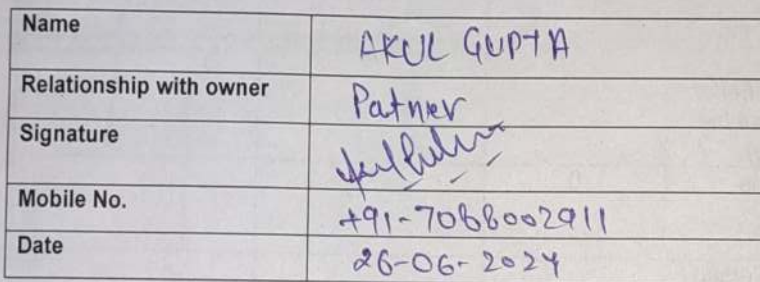 Name AKUL GUPTA
Relationship with owner Patner
Signature
Mobile No. +91-7088002911
Date 26-06-2024